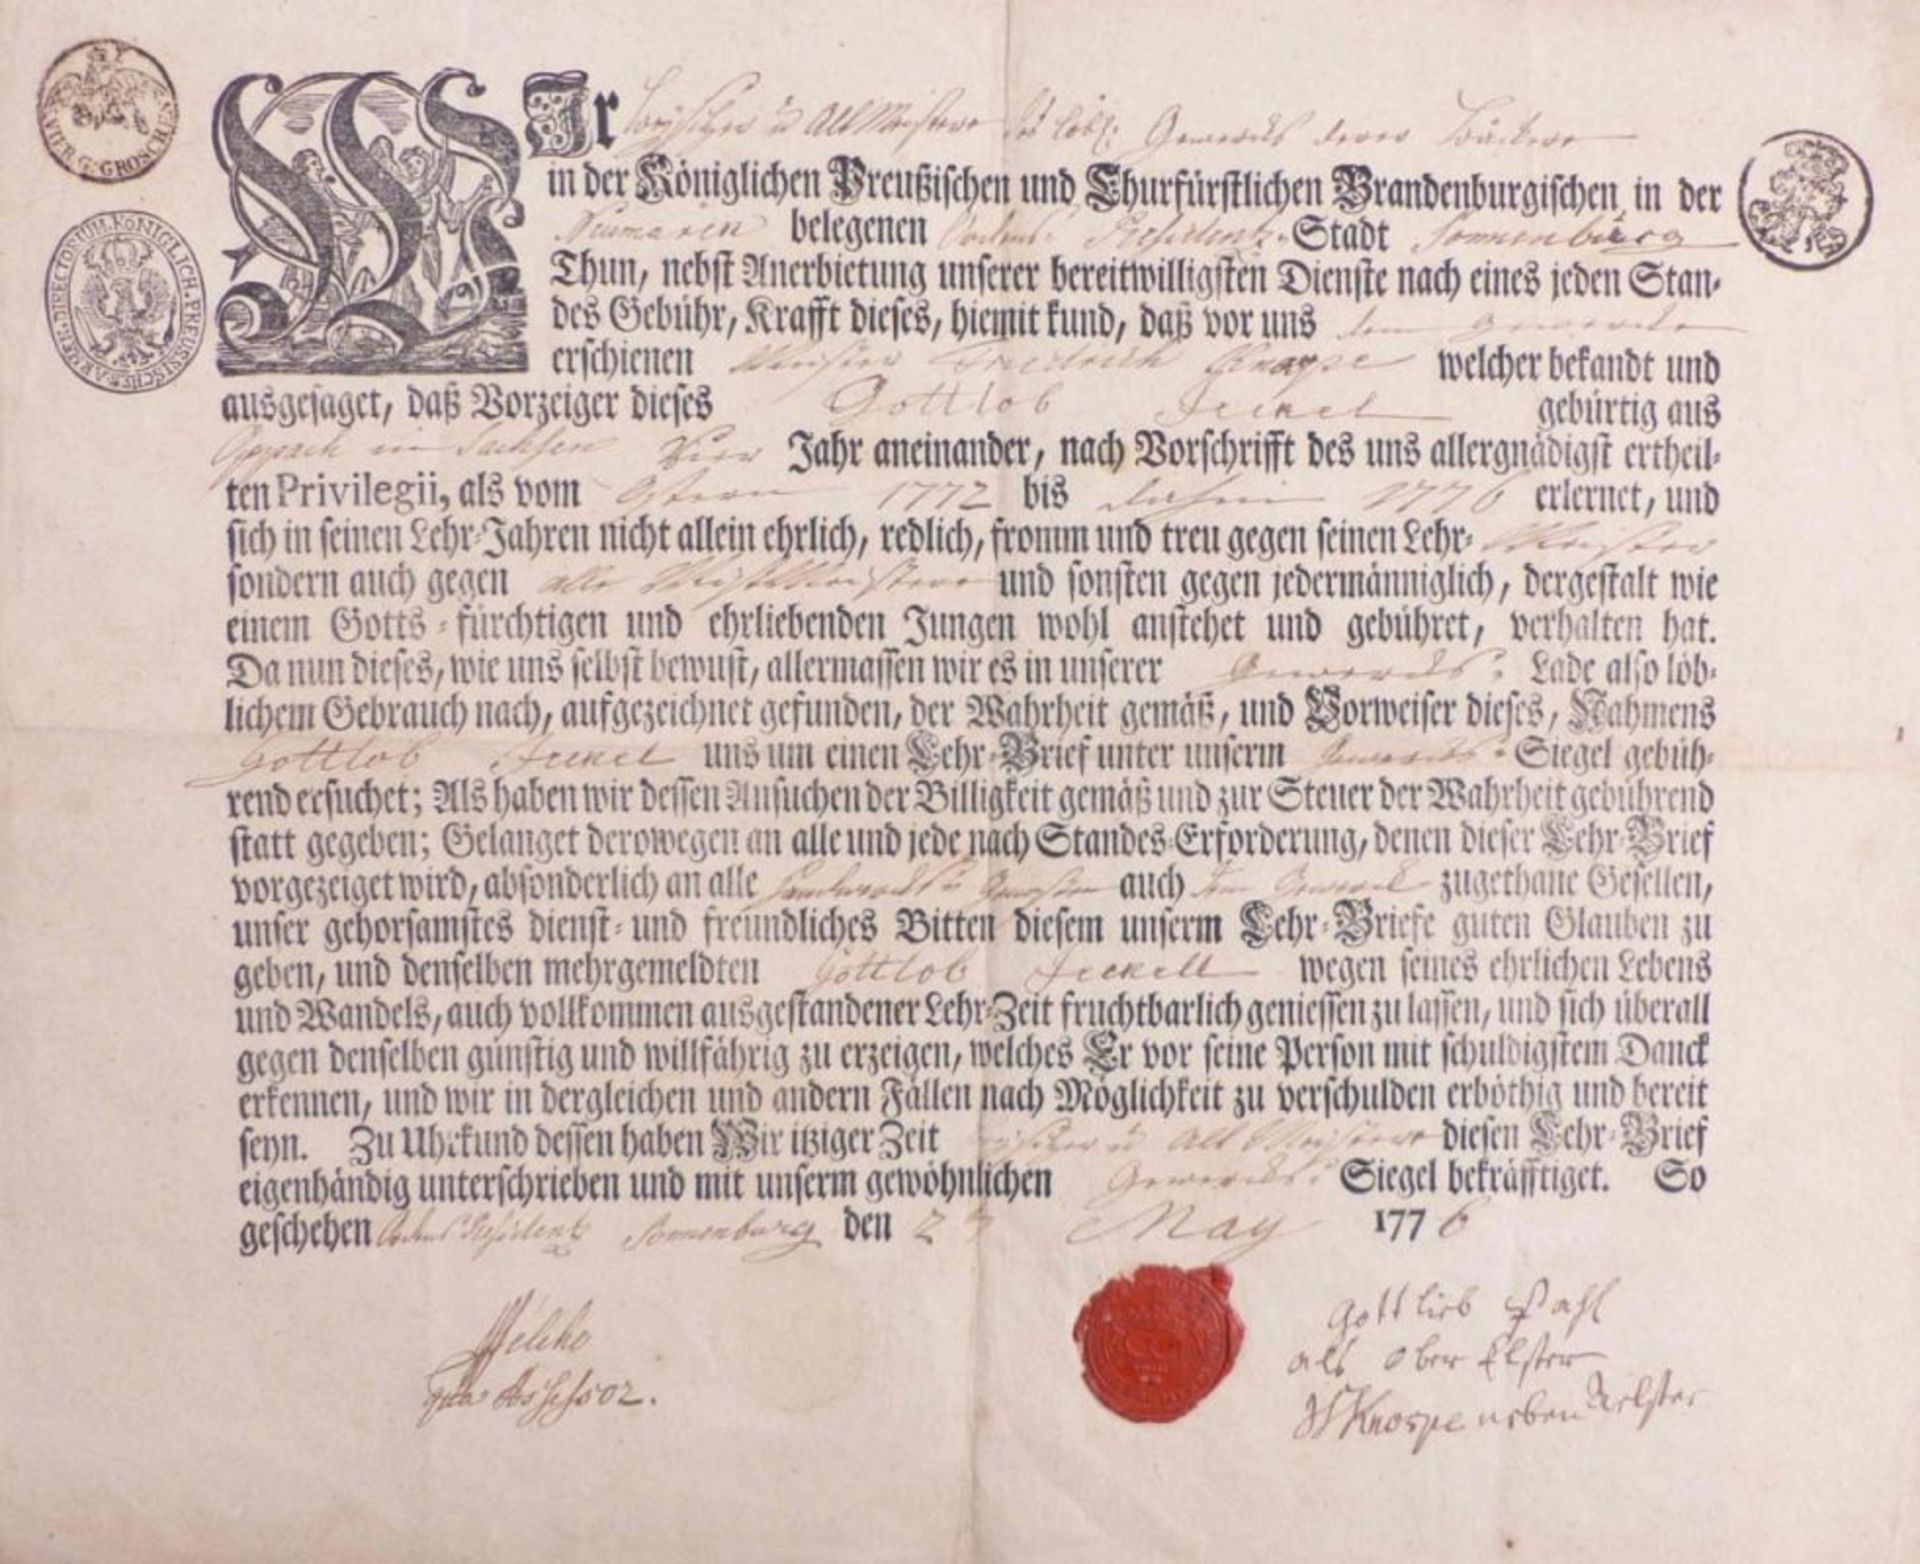 VIER G. GROSCHEN
DIRECTORIUM. KÖNIGLICH. PREUSSISCHES
WJr Beysitzer u Alt Meistere des löbl: Gewercks derer Bäcker
in der Königlichen Preußischen und Churfürstlichen Brandenburgischen in der
Neumarck belegenen Ordens Residentz-Stadt Sonnenburg
Thun, nebst Anerbietung unserer bereitwilligsten Dienste nach eines jeden Stan-
des Gebühr, Krafft dieses, hiemit kund, daß vor uns dem Gewercke
erschienen Meister Friedrich Knospe welcher bekandt und
ausgesaget, daß Vorzeiger dieses Gottlob gebürtig aus
Oppach in Sachsen Vier Jahr aneinander, nach Vorschrifft des uns allergnädigst ertheil-
ten Privilegii, als vom Ostern 1772 bis dahin 1776 erlernet, und
sich in seinen Lehr-Jahren nicht allein ehrlich, redlich, fromm und treu gegen seinen Lehr- Meister
sondern auch gegen alle und sonsten gegen jedermänniglich, dergestalt wie
einem Gotts-fürchtigen und ehrliebenden Jungen wohl anstehet und gebühret, verhalten hat.
Da nun dieses, wie uns selbst bewust, allermassen wir es in unserer Gewercks- Lade also löb-
lichem Gebrauch nach, aufgezeichnet gefunden, der Wahrheit gemäß, und Vorweiser dieses, Nahmens
Gottlob uns um einen Lehr-Brief unter unserm Gewercks-Siegel gebüh-
rend ersuchet; Als haben wir dessen Ansuchen der Billigkeit gemäß und zur Steuer der Wahrheit gebührend
statt gegeben; Gelanget derowegen an alle und jede nach Standes-Erforderung, denen dieser Lehr-Brief
vorgezeiget wird, absonderlich an alle auch dem Gewerck zugethane Gesellen,
unser gehorsamstes dienst- und freundliches Bitten diesem unserm Lehr-Briefe guten Glauben zu
geben, und denselben mehrgemeldten Gottlob wegen seines ehrlichen Lebens
und Wandels, auch vollkommen ausgestandener Lehr-Zeit fruchtbarlich geniessen zu lassen, und sich überall
gegen denselben günstig und willfährig zu erzeigen, welches Er vor seine Person mit schuldigstem Danck
erkennen, und wir in dergleichen und andern Fällen nach Möglichkeit zu verschulden erböthig und bereit
seyn. Zu Uhrkund dessen haben Wir itziger Zeit Beysitzer u Alt Meistere diesen Lehr-Brief
eigenhändig unterschrieben und mit unserm gewöhnlichen Gewercks- Siegel bekräfftiget. So
geschehen Ordens Residentz Sonnenburg den 2 May 1776
qua Assessor.
Gottlieb Pahl
als Ober Elster
Knospe neben Aelster